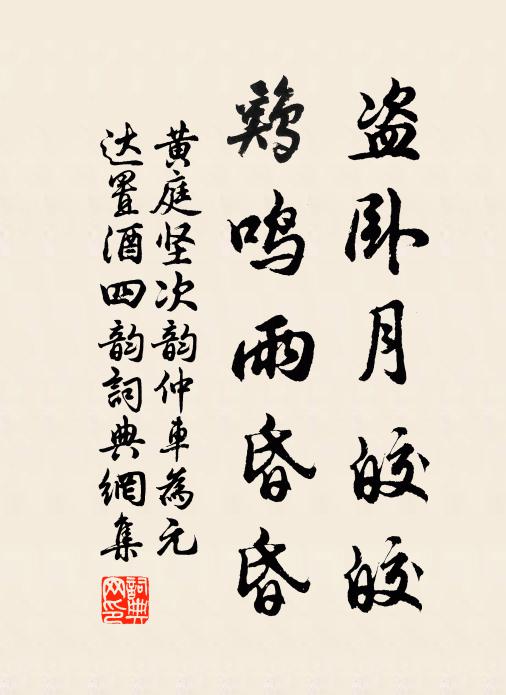 盗卧月皎皎
鷄鳴雨昏昏
黄庭坚次韵仲車為元
达置酒四韵詞典網集
詞典網印